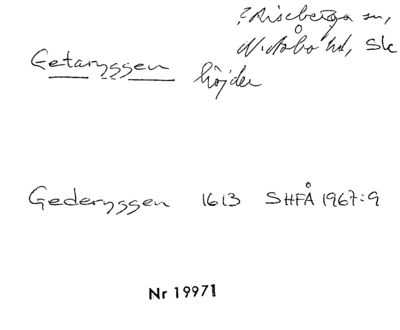 ?Riseberga sn,
N. Åsbo hd, Sk
Getaryggen höjder
Gederyggen 1613 SHFÅ 1967:9
Nr 19971